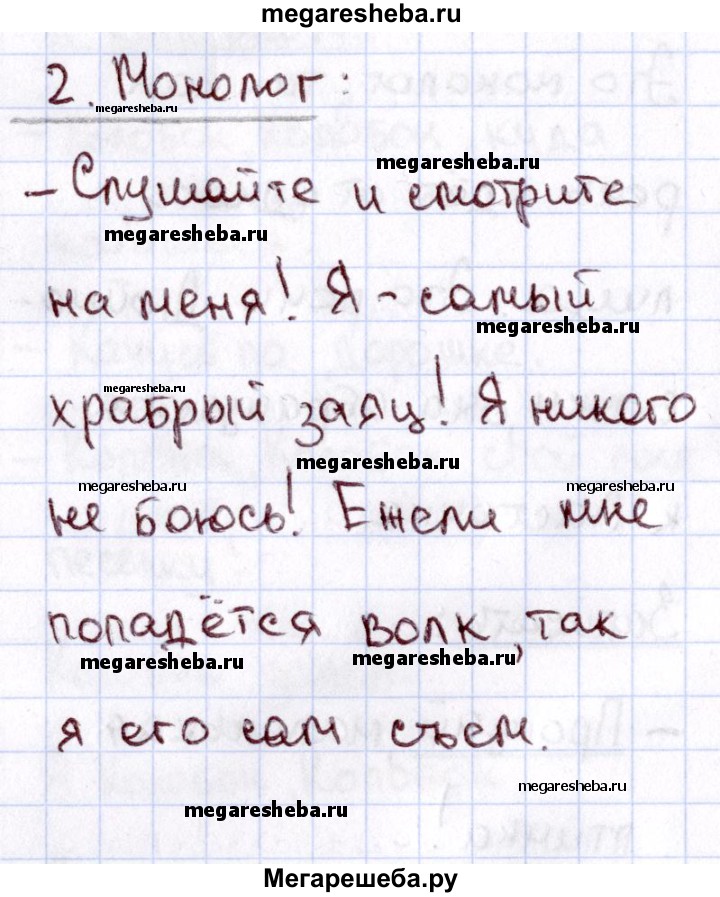 megaresheba.ru
2. Монолог:
megaresheba.ru
megaresheba.ru
- Слушайте и смотрите
megaresheba.ru
на меня! Я - самый
megaresheba.ru
megaresheba.ru
храбрый заяц! Я никого
megaresheba.ru
megaresheba.ru
megaresheba.ru
не боюсь! Ежели мне
попадётся волк, так
megaresheba.ru
megaresheba.ru
я его сам съем.
megaresheba.ru
megaresheba.ru
Мегарешеба.ру